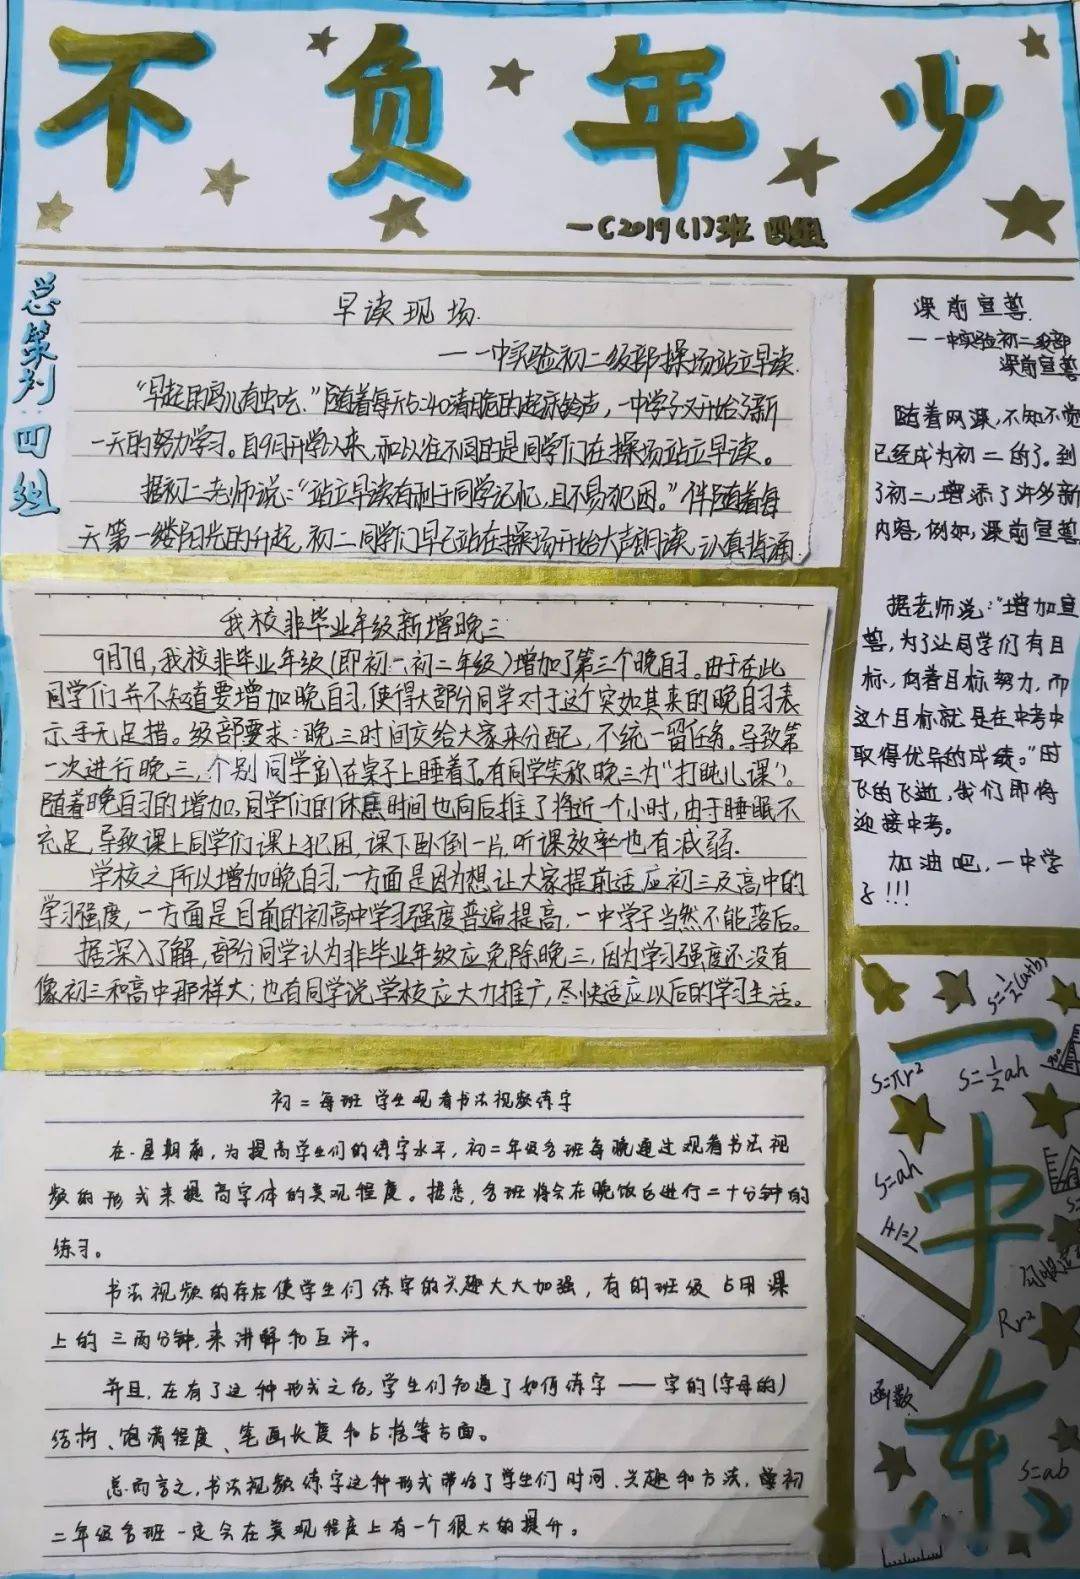 不负年少
—C2019(1)班 四组
总策划四组
早读现场.
——一中实验初二级部操场站立早读.
“早起的鸟儿有虫吃.”随着每天5:40清脆的起床铃声，一中学子又开始了新
一天的努力学习。自9月开学以来,和以往不同的是同学们在操场站立早读。
据初二老师说：“站立早读有利于同学记忆,且不易犯困。”伴随着每
天第一缕阳光的升起,初二同学们早已站在操场开始大声朗读,认真背诵.
我校非毕业年级新增晚三
9月7日,我校非毕业年级(即初一、初二年级)增加了第三个晚自习.由于在此
同学们并不知道要增加晚自习,使得大部分同学对于这个突如其来的晚自习表
示手无足措。级部要求:晚三时间交给大家来分配,不统一留任务.导致第
一次进行晚三,个别同学趴在桌子上睡着了。有同学笑称晚三为“打盹儿课”.
随着晚自习的增加,同学们的休息时间也向后推了将近一个小时,由于睡眠不
充足,导致课上同学们课上犯困,课下卧倒一片,听课效率也有减弱.
学校之所以增加晚自习,一方面是因为想让大家提前适应初三及高中的
学习强度,一方面是目前的初高中学习强度普遍提高,一中学子当然不能落后。
据深入了解,部分同学认为非毕业年级应免除晚三,因为学习强度还没有
像初三和高中那样大;也有同学说学校应大力推广,尽快适应以后的学习生活。
初二每班学生观看书法视频练字
在星期家,为提高学生们的练字水平,初二年级各班每晚通过观看书法视
频的形式来提高字体的美观程度。据悉,各班将会在晚饭后进行二十分钟的
练习。
书法视频的存在使学生们练字的兴趣大大加强,有的班级占用课
上的三两分钟,来讲解和互评。
并且,在有了这种形式之后,学生们知道了如何练字——字的(字母的)
结构、饱满程度、笔画长度和占格等方面。
总而言之,书法视频练字这种形式带给了学生们时间、兴趣和方法,
初
二年级各班一定会在美观程度上有一个很大的提升。
课前宣誓
——一中实验初二级部
课前宣誓
随着网课,不知不觉
已经成为初二的了。到
了初二,增添了许多新
内容,例如,课前宣誓
据老师说:“增加宣
誓,为了让同学们有目
标,向着目标努力,而
这个目标就是在中考中
取得优异的成绩。”时
飞的飞逝,我们即将
迎接中考。
加油吧,一中学
子!!!
一中东
S=½(a+b)
S=πr²
S=½ah
S=ah
1+1=2
Rr²
函数
S=ab